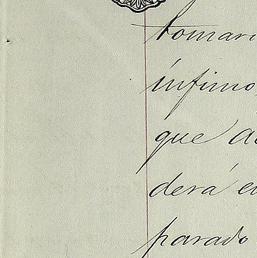 tomar
ínfimo,
que a
derá e
parado